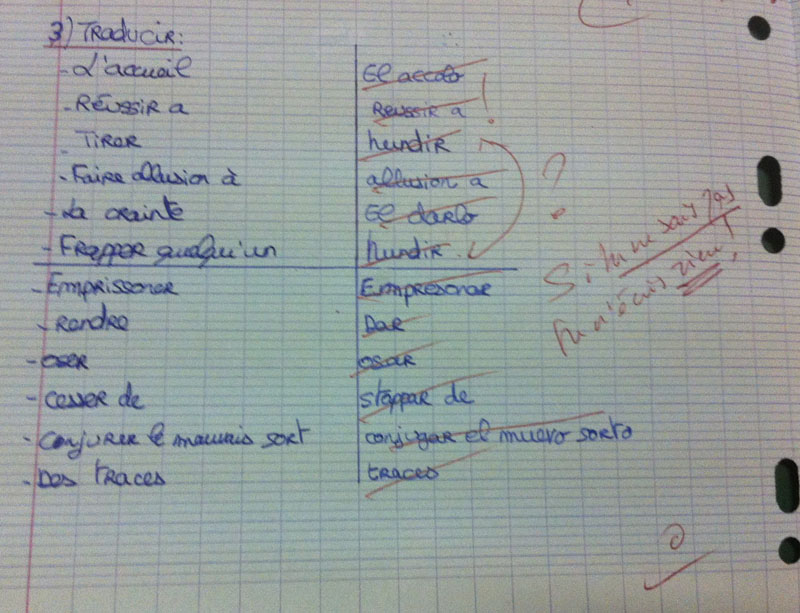 3) Traducir:
- L'accueil El accolo !
- Réussir a Reussir a
- Tirer hundir
- Faire allusion à allusion a ?
- La crainte El darlo
- Frapper quelqu'un hundir.
- Emprissoner Empresonar
- Rendre Dar
- oser osar
- cesser de stoppar de
- conjurer le mauvais sort conjugar el muevo sorto
- Des traces traces
Si tu ne sais pas
tu n'écris rien !
0